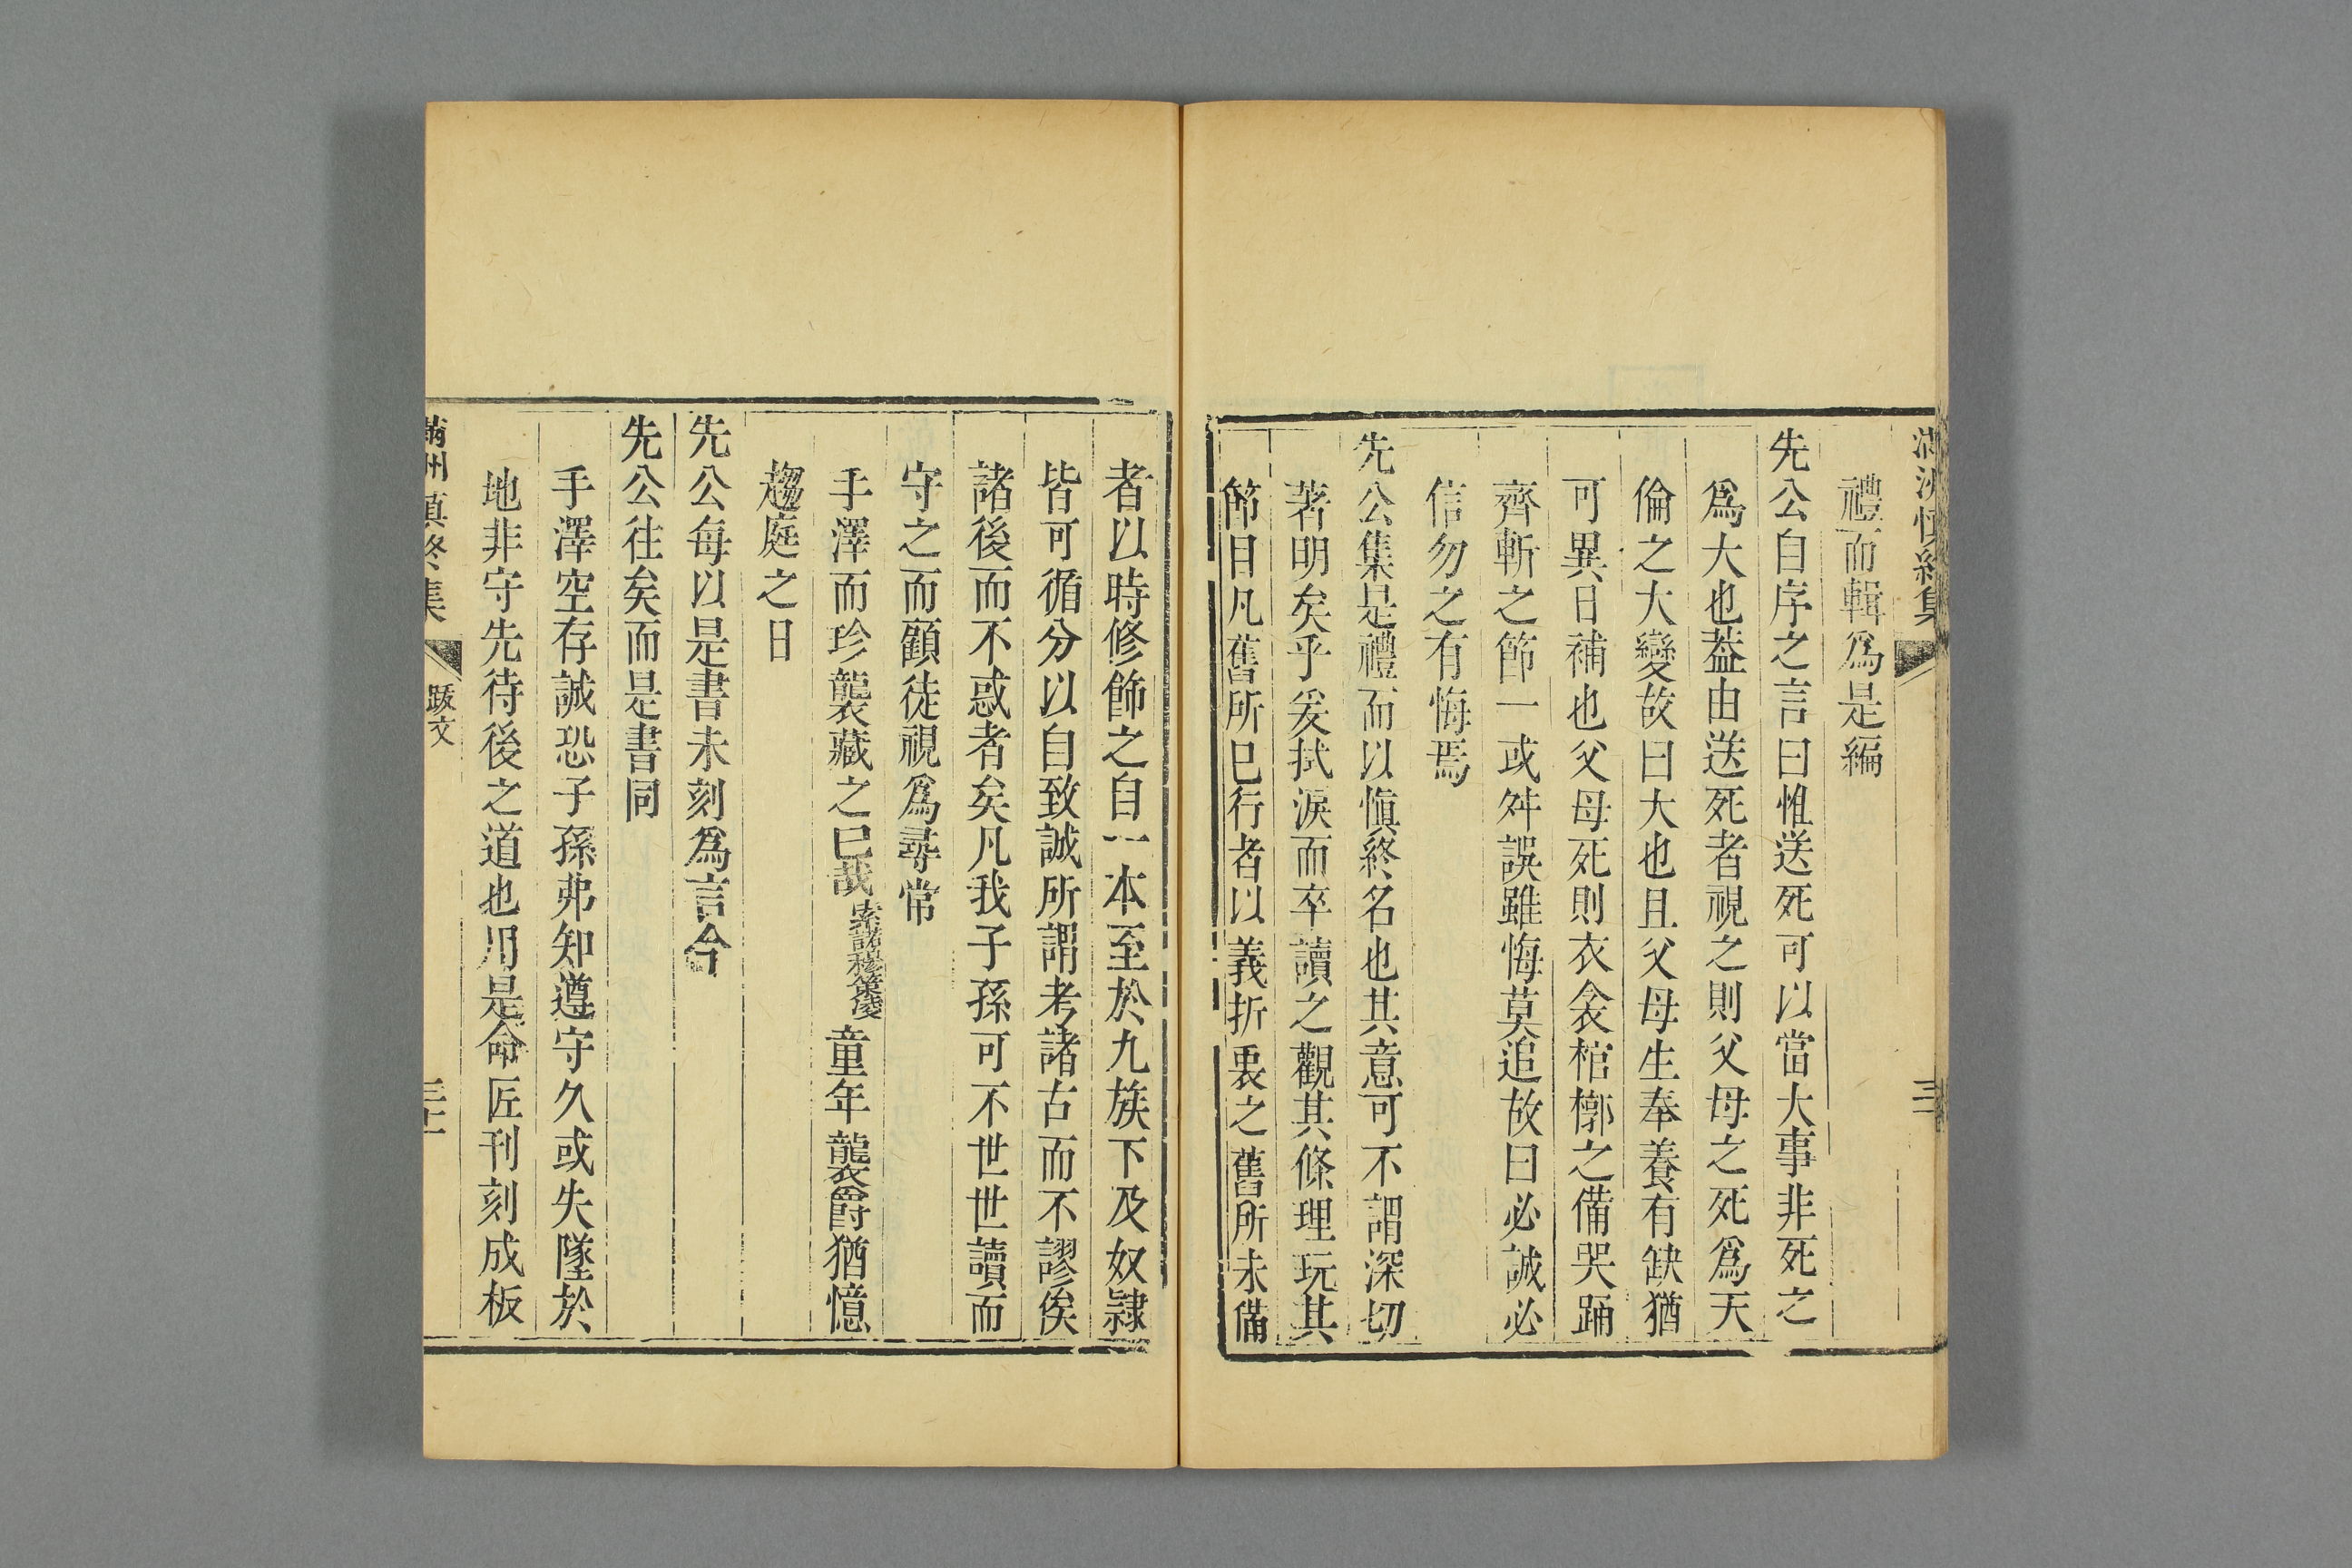 禮而輯爲是編
先公自序之言曰惟送死可以當大事非死之
爲大也葢由送死者視之則父母之死爲天
倫之大變故曰大也且父母生奉養有缺猶
可異日補也父母死則衣衾棺槨之備哭踊
齊斬之節一或舛誤雖悔莫追故曰必誠必
信勿之有悔焉
先公集是禮而以愼終名也其意可不謂深切
著明矣乎爰拭淚而卒讀之觀其條理玩其
節目凡舊所已行者以義折衷之舊所未備
者以時修飾之自一本至於九族下及奴隷
皆可循分以自致誠所謂考諸古而不謬俟
諸後而不惑者矣凡我子孫可不世世讀而
守之而顧徒視爲尋常
手澤而珍襲藏之已哉索諾穆策凌童年襲爵猶憶
趨庭之日
先公每以是書未刻爲言今
先公往矣而是書同
手澤空存誠恐子孫弗知遵守久或失墜於
地非守先待後之道也用是命匠刊刻成板
滿州慎終集
跋文
三十一